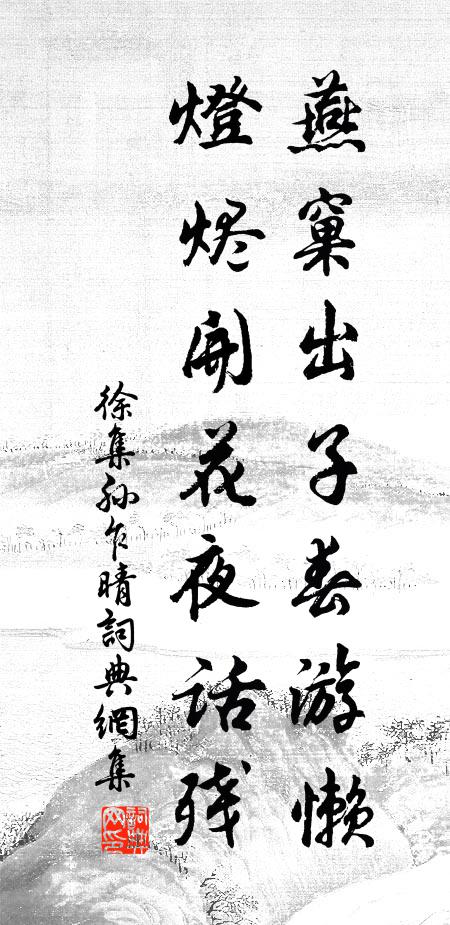 燕窠出子春游懒
燈烬開花夜话残
徐集孙乍晴詞典網集